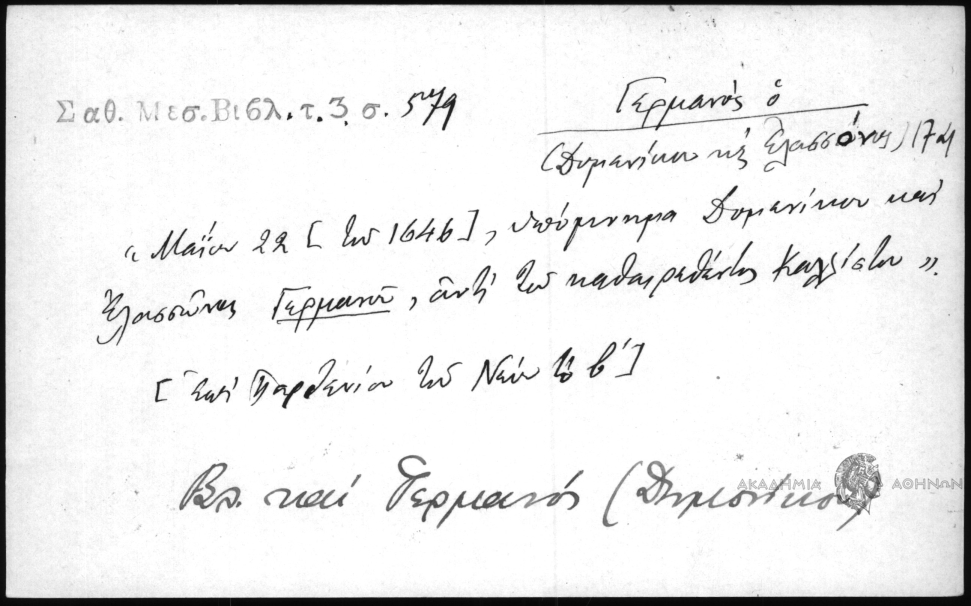 Σαθ. Μεσ. Βιβλ. τ. 3, σ. 579
Γερμανός ὁ
(Δομενίκου κ̀ Ἐλασσόνος) 17
«Μαΐου 22 [τοῦ 1646], ὑπόμνημα Δομενίκου καὶ
Ἐλασσῶνος Γερμανοῦ, ἀντὶ τοῦ καθαιρεθέντος Καλλίστου».
[Ἐπὶ Παρθενίου τοῦ Νέου τοῦ β΄]
Βλ. καὶ Γερμανός (Δημονίκου)
ΑΚΑΔΗΜΙΑ ΑΘΗΝΩΝ